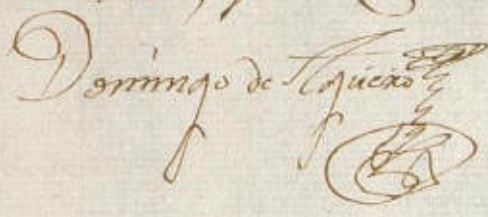 Domingo de Aguero